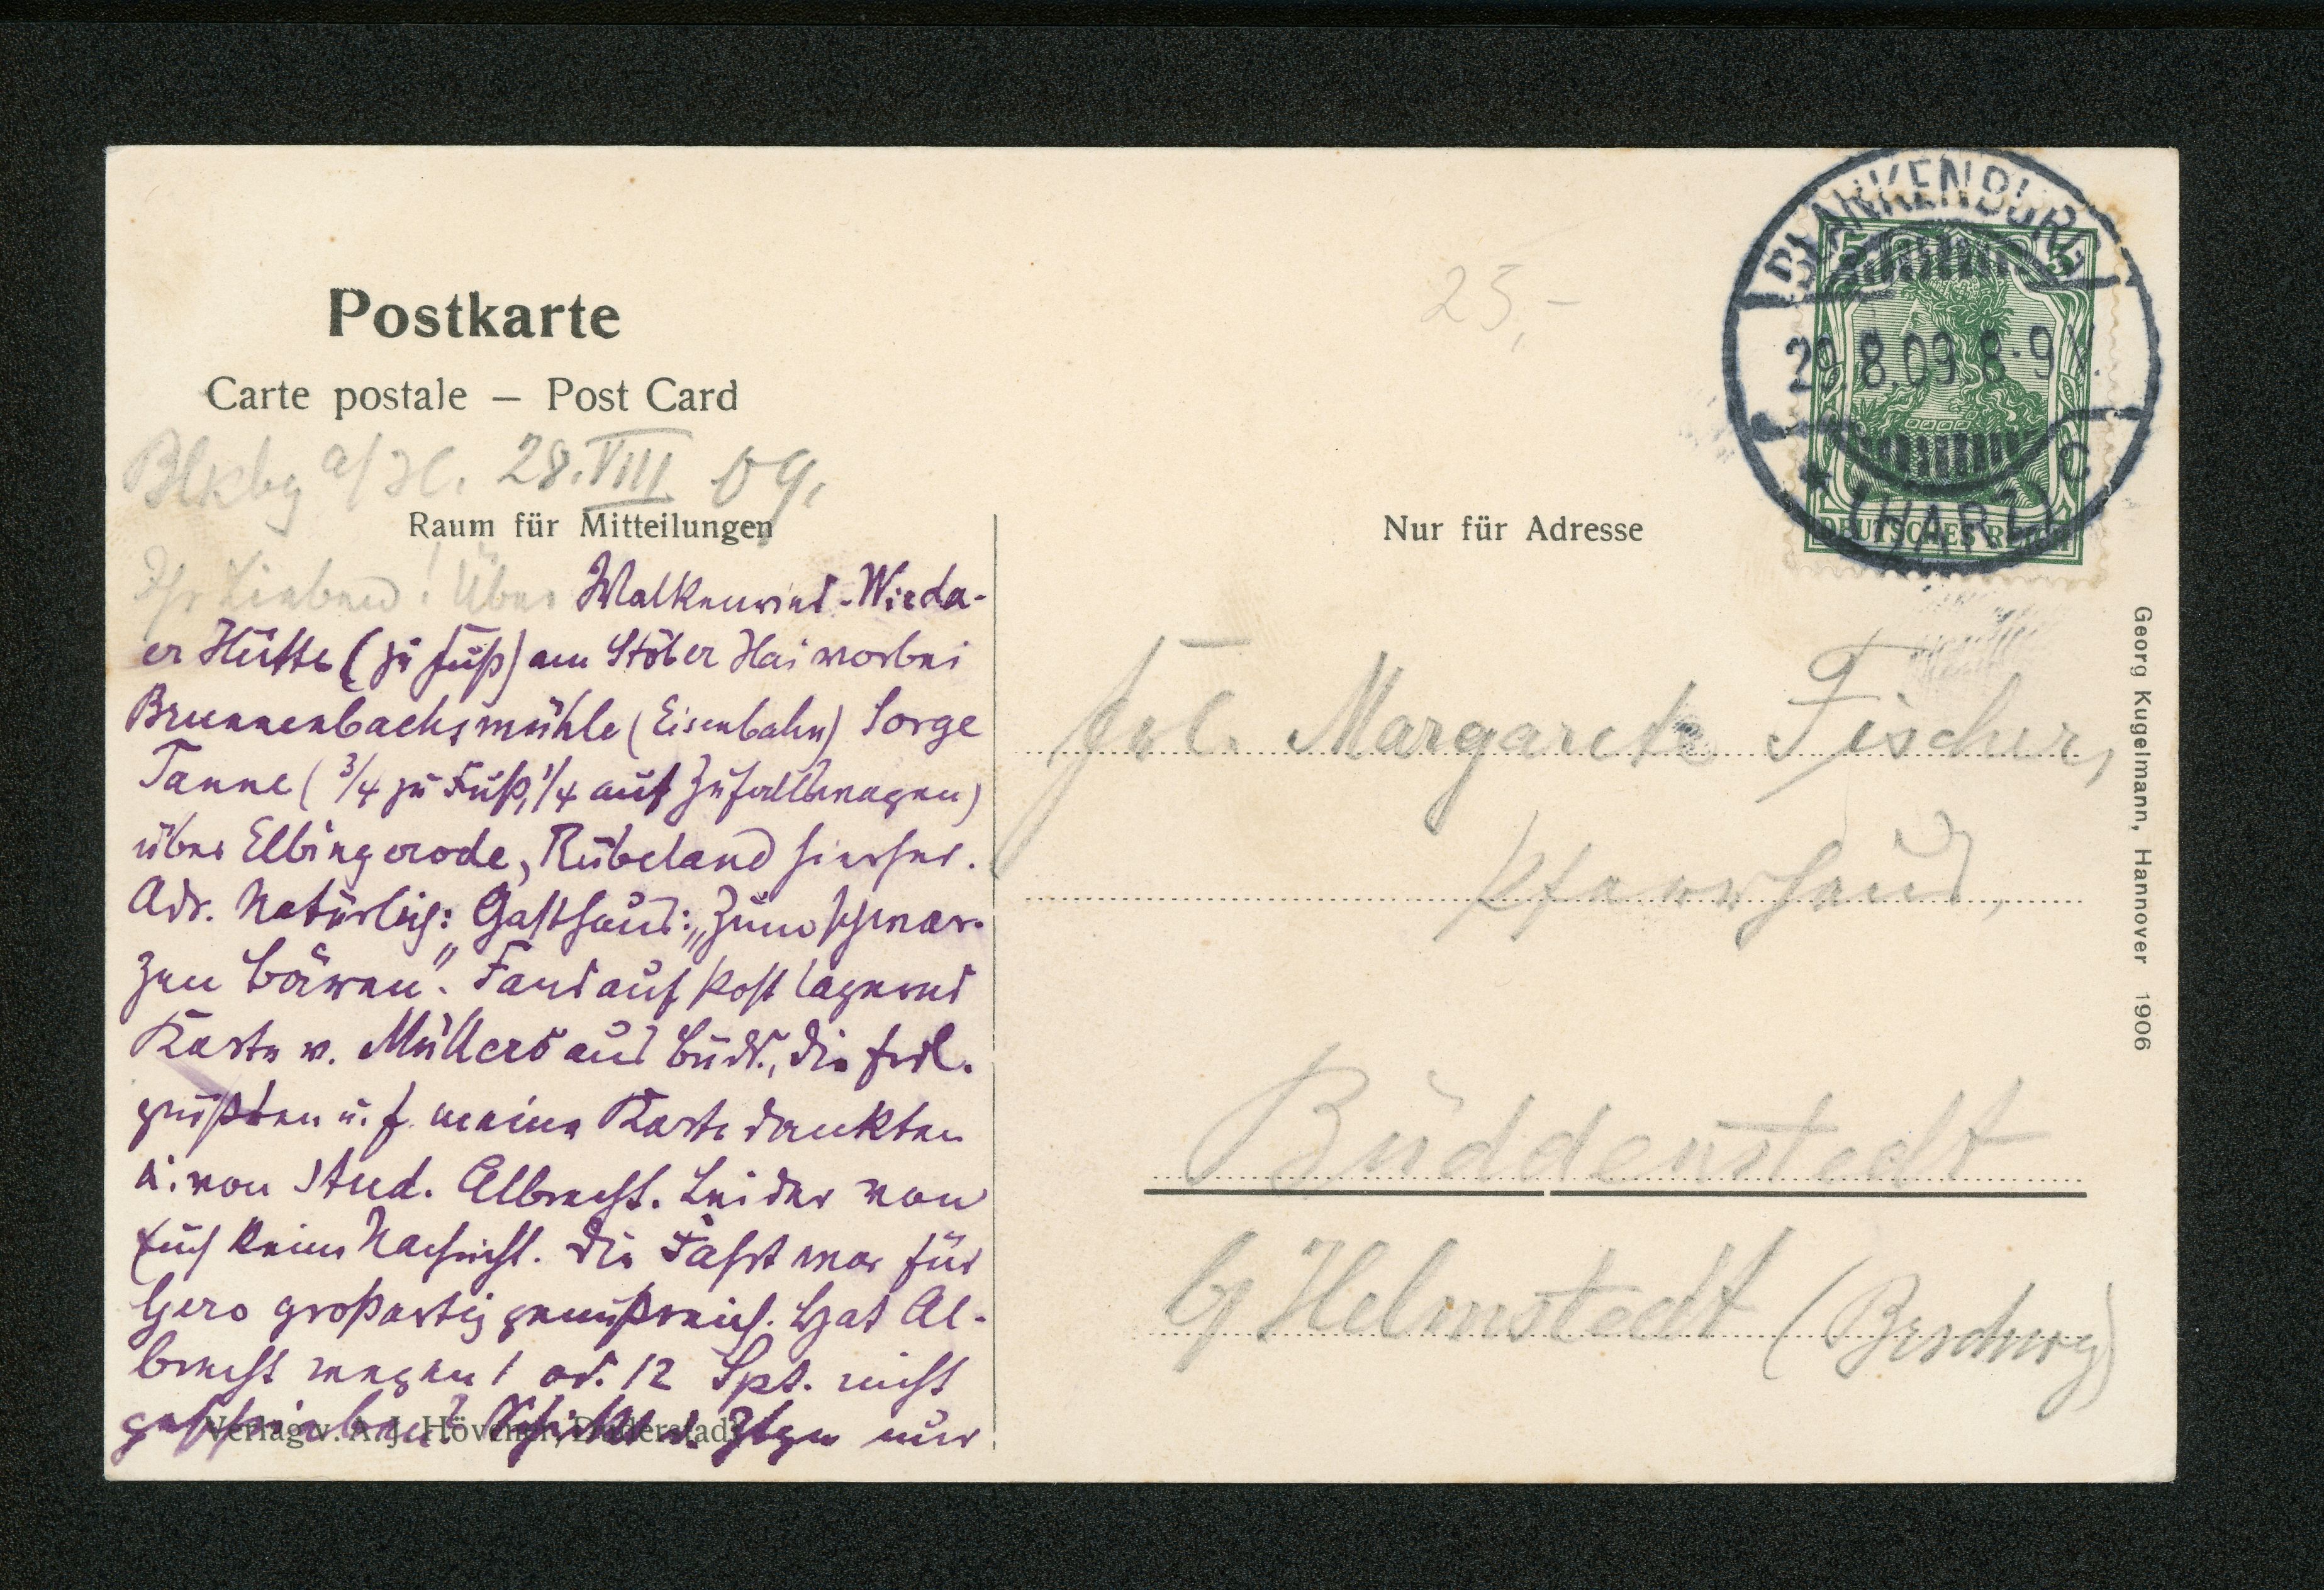 Postkarte
Carte postale – Post Card
Blkbg a/H. 28. VIII 09.
Raum für Mitteilungen
Ihr Lieben! Über Walkenried-Wieda-
er Hütte (zu Fuß) am Stöber Hai vorbei
Brunnenbachsmühle (Eisenbahn) Sorge
Tanne (3/4 zu Fuß, 1/4 auf Zufallswagen)
über Elbingerode, Rübeland hierher.
Adr. Natürlich: Gasthaus: „Zum schwar-
zen Bären". Fand auf Post lagernd
Karte v. Müllers aus Büdd., die frdl.
grüßten u. f. meine Karte dankten
u. von stud. Albrecht. Leider von
Euch keine Nachricht. Die Fahrt war für
Gero großartig genußreich. Hat Al-
brecht wegen 1 od. 12 Spt. nicht
geschrieben? Schickt d. Ztgn nur
Verlag v. A. J. Hövener, Duderstadt
25,-
BLANKENBURG
29.8.09.8-9V.
* (HARZ) C
5 5
DEUTSCHES REICH
Nur für Adresse
Frl. Margarete Fischer,
Pfarrhaus,
Büddenstedt
b/ Helmstedt (Brschwg)
Georg Kugelmann, Hannover 1906